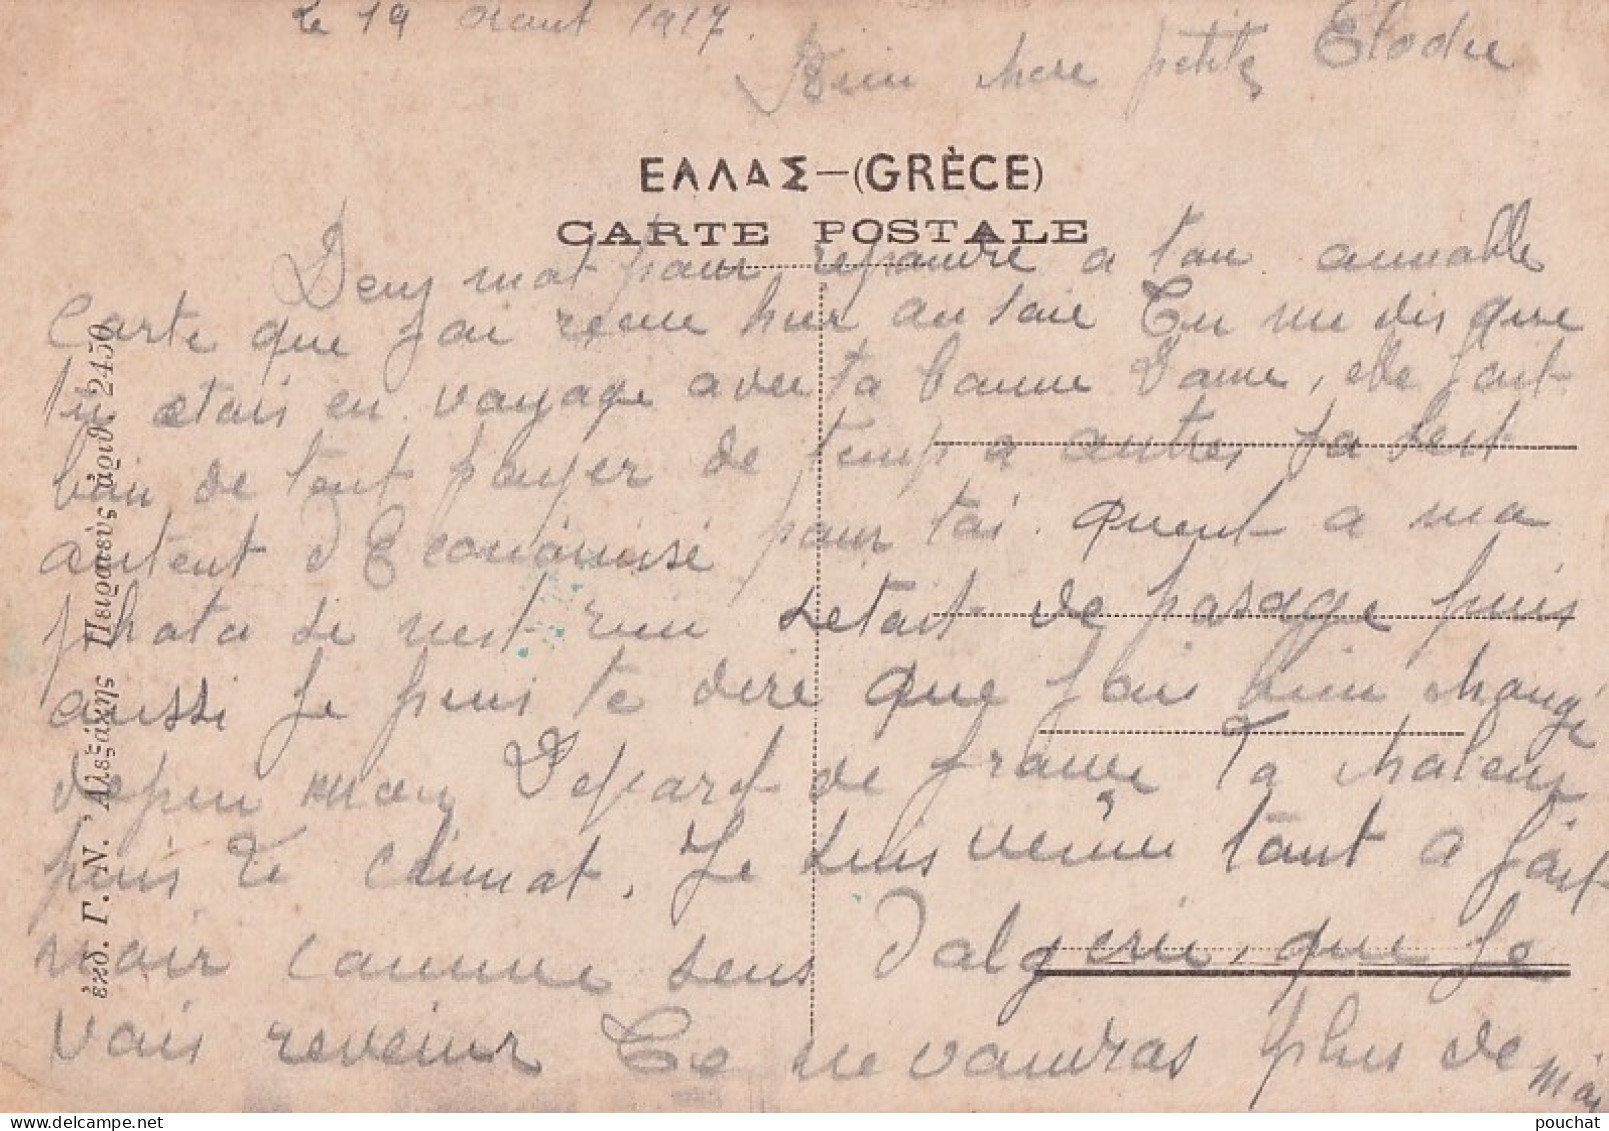 Le 19 Aout 1917.
Bien chere petite Elodie
ΕΛΛΑΣ—(GRÈCE)
CARTE POSTALE
Deux mot pour repondre a ton aimable
Carte que j'ai recue hier au soir Tu me dis que
tu etais en voyage avec ta bonne Dame, elle fait
bien de tent payer de temp a autres sa sest
autent d Economisé pour toi. Quent a ma
photo se nest rien setait de pasage puis
aussi Je puis te dire que j'ais bien changé
depui mon Depart de france La chaleur
puis le climat. Je suis venu tout a fait
noir comme seus d'algerie, que Je
vais revenir Tu ne voudras plus de moi
ἐκδ. Γ. Ν. Ἀλεξάκης Πειραιεὺς ἀριθ. 2450
pouchat